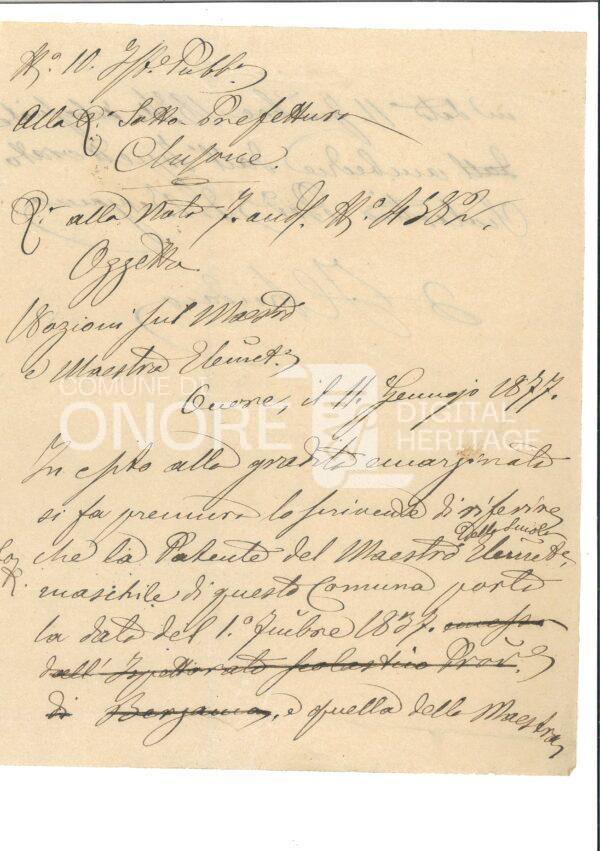 N.° 10. Ist.e Pubb.a
Alla R. Sotto Prefettura
Clusone.
R. alla Nota 7. and.e N.° 4382.
Oggetto
Nozioni sul Maestro
e Maestra Element.e
Onore, il 11 Gennajo 1877.
In esito alla gradita emarginata
si fa premura lo scrivente di riferire
della Scuola
che la Patente del Maestro Element.e
maschile di questo Comune porta
la data del 1.° 1857. emessa
dall' Ispettorato scolastico Prov.e
di Bergamo, e quella della Maestra
COMUNE DI
ONORE
DIGITAL
HERITAGE